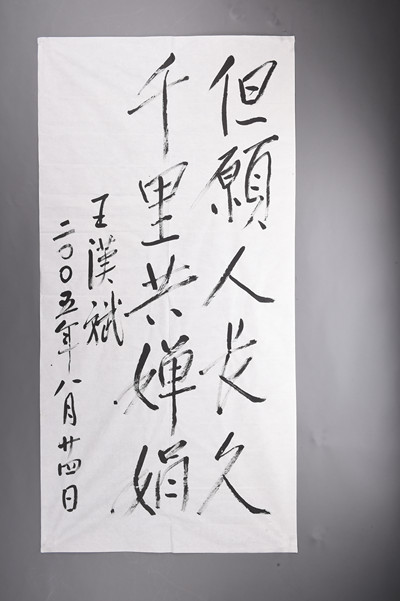 但願人長久
千里共嬋娟
王漢斌
二〇〇五年八月廿四日